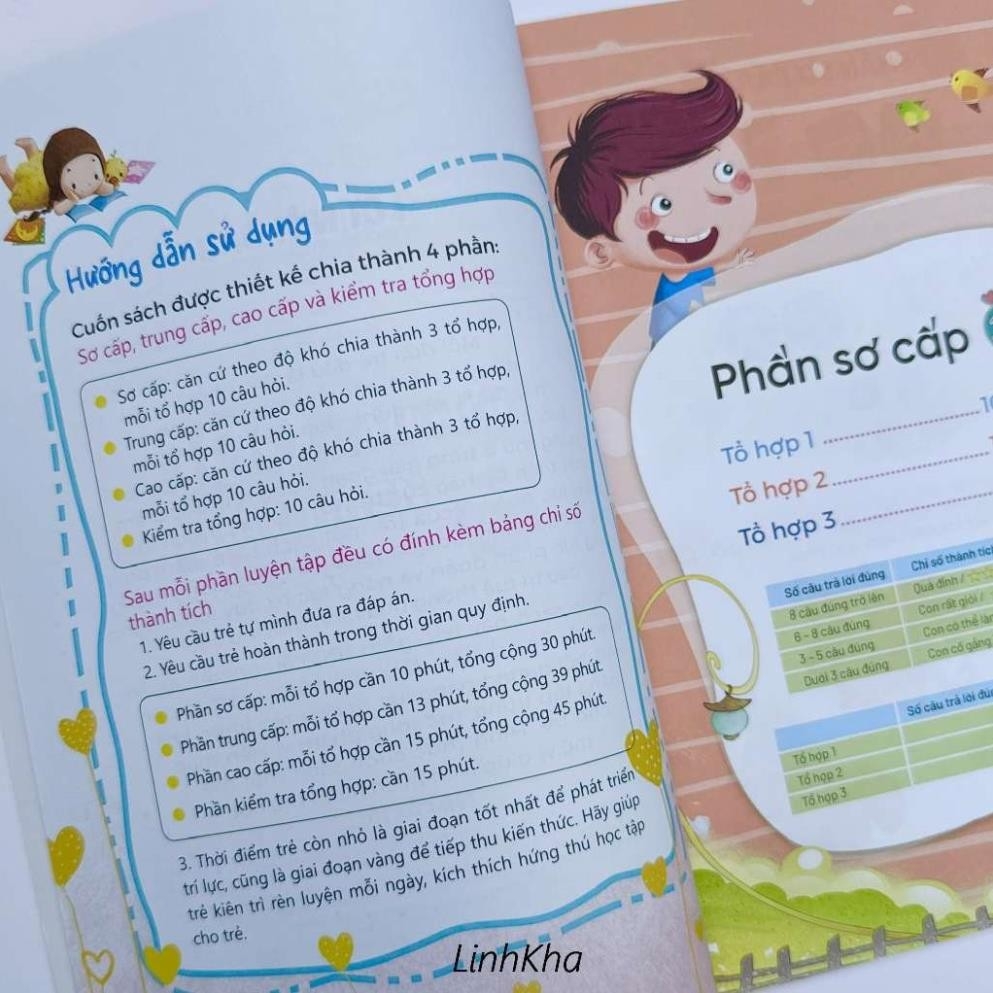 Hướng dẫn sử dụng
Cuốn sách được thiết kế chia thành 4 phần:
Sơ cấp, trung cấp, cao cấp và kiểm tra tổng hợp
Sơ cấp: căn cứ theo độ khó chia thành 3 tổ hợp,
mỗi tổ hợp 10 câu hỏi.
Trung cấp: căn cứ theo độ khó chia thành 3 tổ hợp,
mỗi tổ hợp 10 câu hỏi.
Cao cấp: căn cứ theo độ khó chia thành 3 tổ hợp,
mỗi tổ hợp 10 câu hỏi.
Kiểm tra tổng hợp: 10 câu hỏi.
Sau mỗi phần luyện tập đều có đính kèm bảng chỉ số
thành tích
1. Yêu cầu trẻ tự mình đưa ra đáp án.
2. Yêu cầu trẻ hoàn thành trong thời gian quy định.
Phần sơ cấp: mỗi tổ hợp cần 10 phút, tổng cộng 30 phút.
Phần trung cấp: mỗi tổ hợp cần 13 phút, tổng cộng 39 phút.
Phần cao cấp: mỗi tổ hợp cần 15 phút, tổng cộng 45 phút.
Phần kiểm tra tổng hợp: cần 15 phút.
3. Thời điểm trẻ còn nhỏ là giai đoạn tốt nhất để phát triển
trí lực, cũng là giai đoạn vàng để tiếp thu kiến thức. Hãy giúp
trẻ kiên trì rèn luyện mỗi ngày, kích thích hứng thú học tập
cho trẻ.
Phần sơ cấp
Tổ hợp 1
Tổ hợp 2
Tổ hợp 3
Số câu trả lời đúng Chỉ số thành tích
8 câu đúng trở lên Quá đỉnh /
6 - 8 câu đúng Con rất giỏi /
3 - 5 câu đúng Con có thể
Dưới 3 câu đúng Con cố gắng
Số câu trả lời
Tổ hợp 1
Tổ hợp 2
Tổ hợp 3
LinhKha